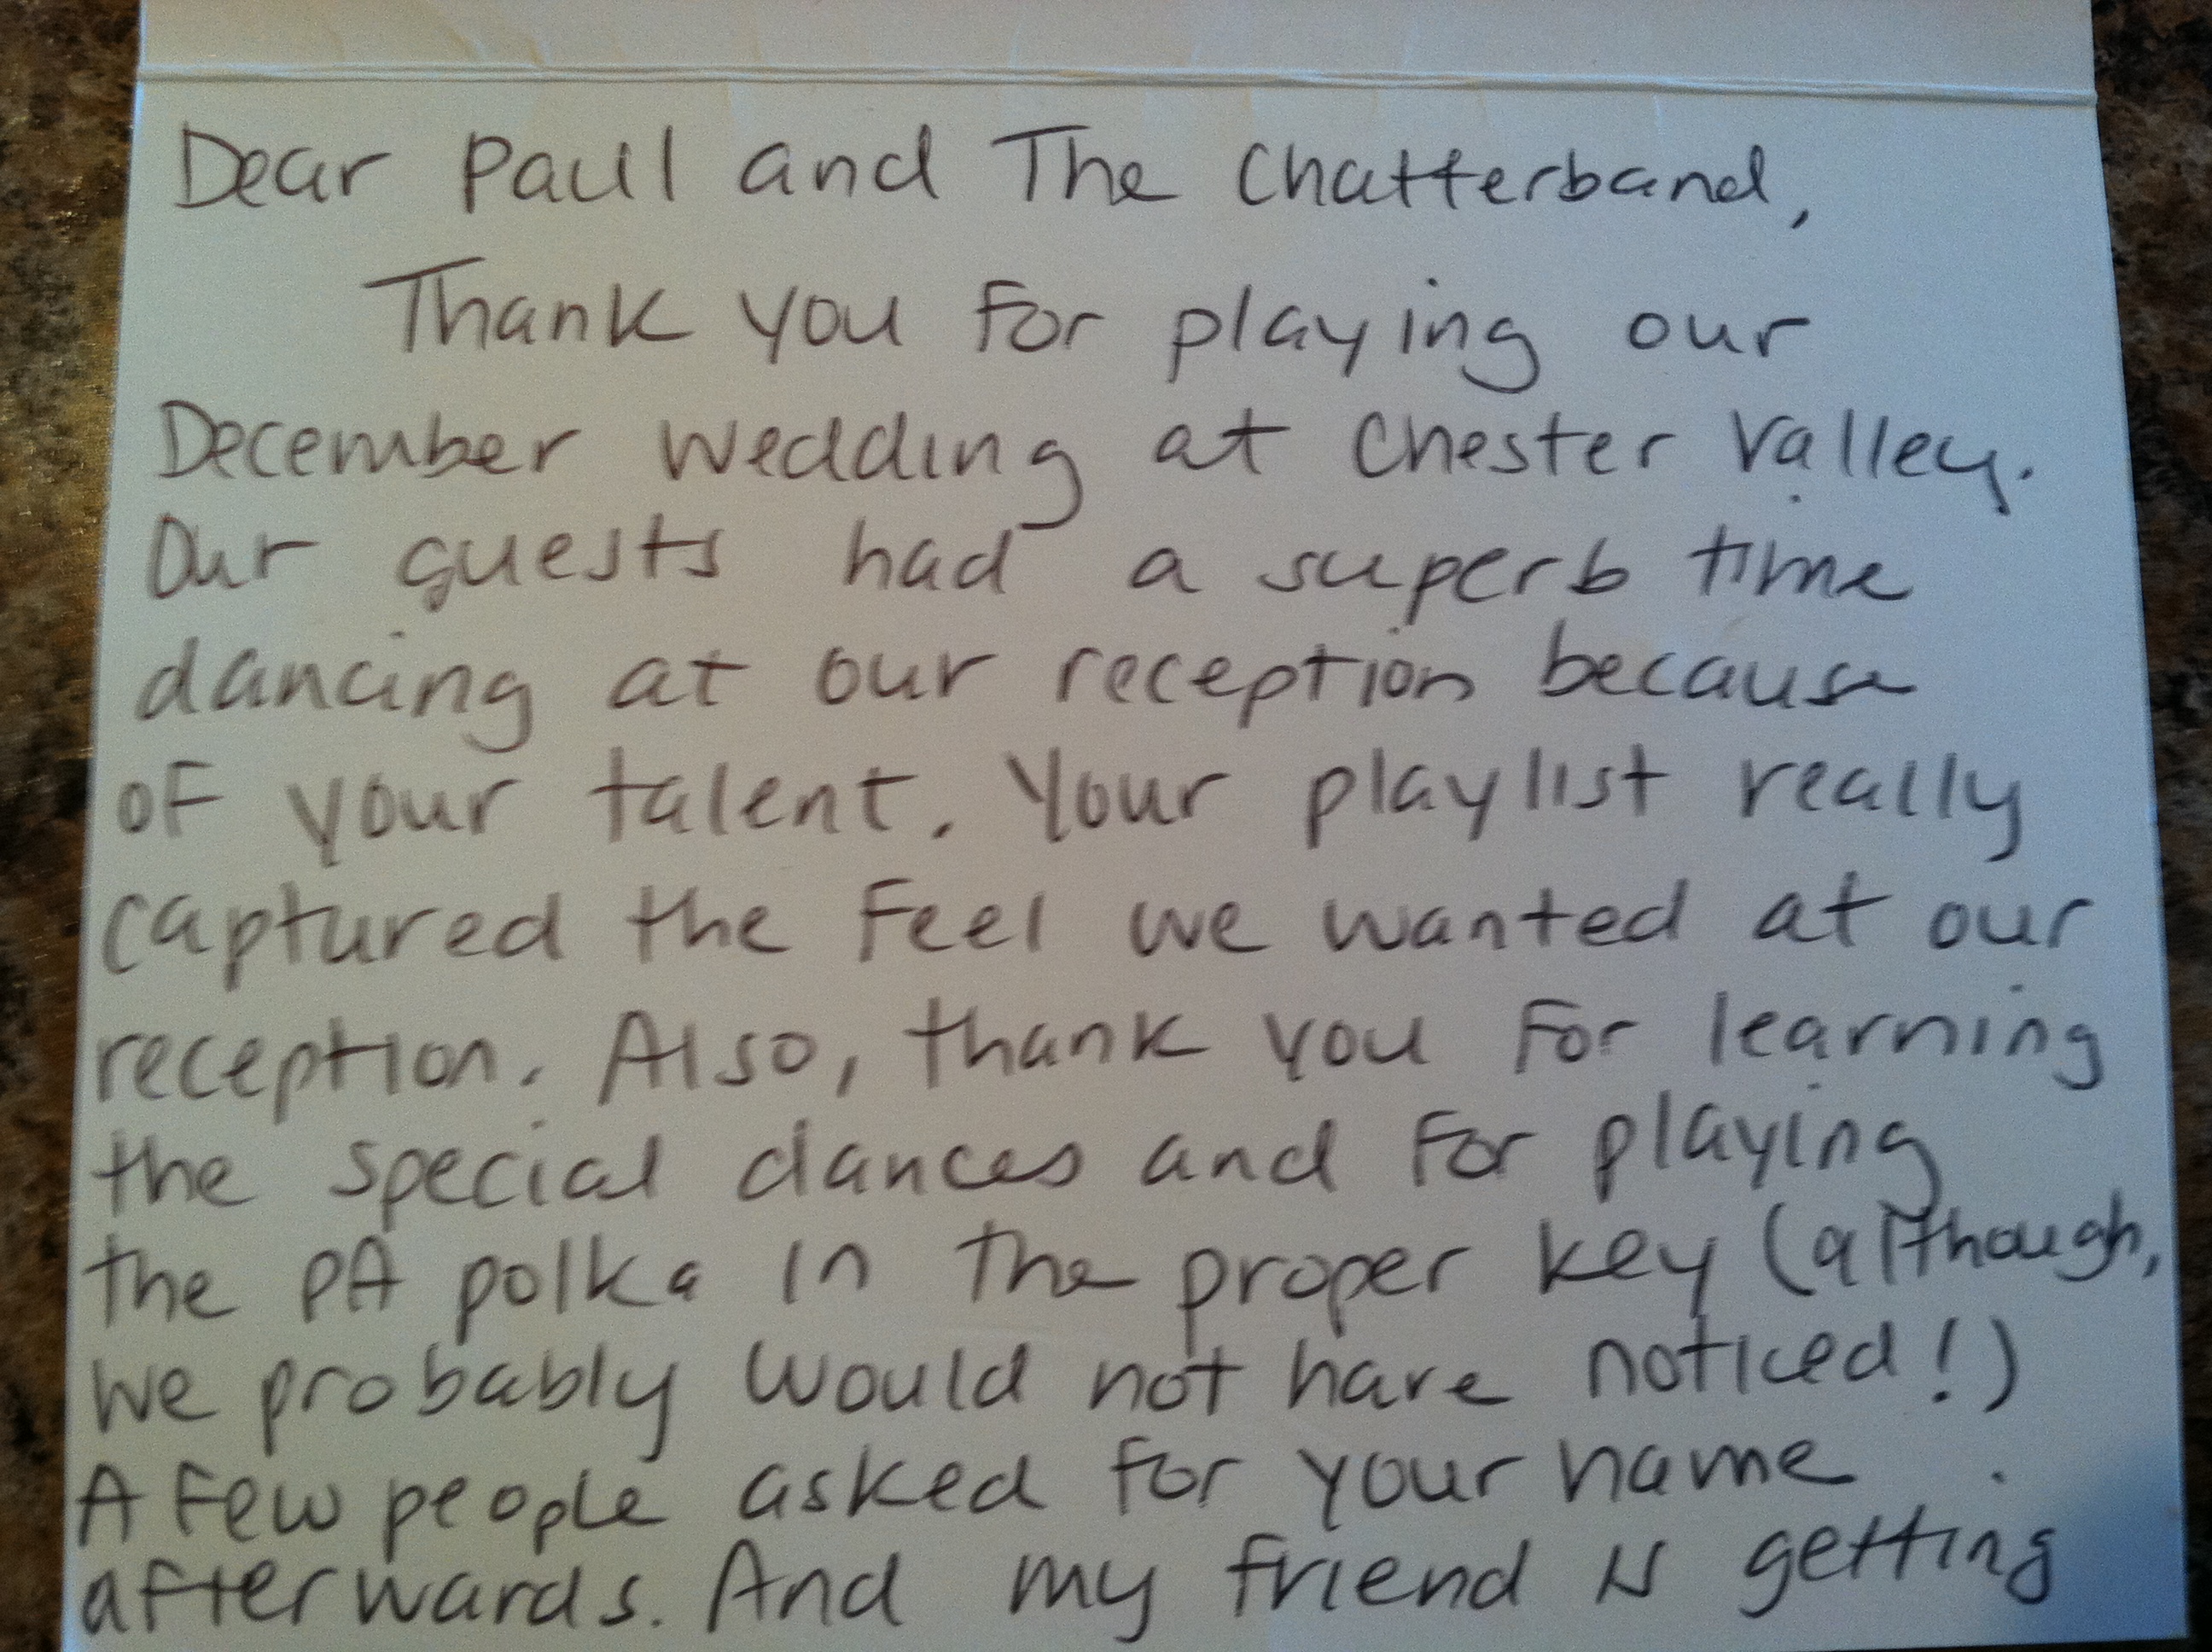 Dear Paul and The Chatterband,
Thank you for playing our
December wedding at Chester Valley.
Our guests had a superb time
dancing at our reception because
of your talent. Your playlist really
captured the feel we wanted at our
reception. Also, thank you for learning
the special dances and for playing
the PA polka in the proper key (although,
we probably would not have noticed!)
A few people asked for your name
afterwards. And my friend is getting